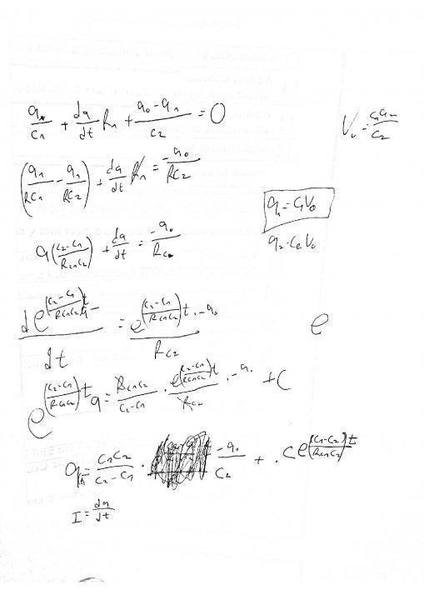 q₁/C₁ + dq/dt R₁ + (q₀ - q₁)/C₂ = 0
V₀ = C₁q₀/C₂
(q₁/RC₁ - q₁/RC₂) + dq/dt = -q₀/RC₂
q₁ = C₁V₀
q₂ = C₂V₀
q((C₂-C₁)/RC₁C₂) + dq/dt = -q₀/RC₂
d e^((C₂-C₁)/RC₁C₂)t q / dt = e^((C₂-C₁)/RC₁C₂)t · -q₀ / RC₂
e
e^((C₂-C₁)/RC₁C₂)t q = RC₁C₂/(C₂-C₁) · e^((C₂-C₁)/RC₁C₂)t · -q₀ / RC₂ + C
q = C₁C₂/(C₂-C₁) · -q₀/C₂ + · C e^((C₁-C₂)/RC₁C₂)t
I = dq/dt